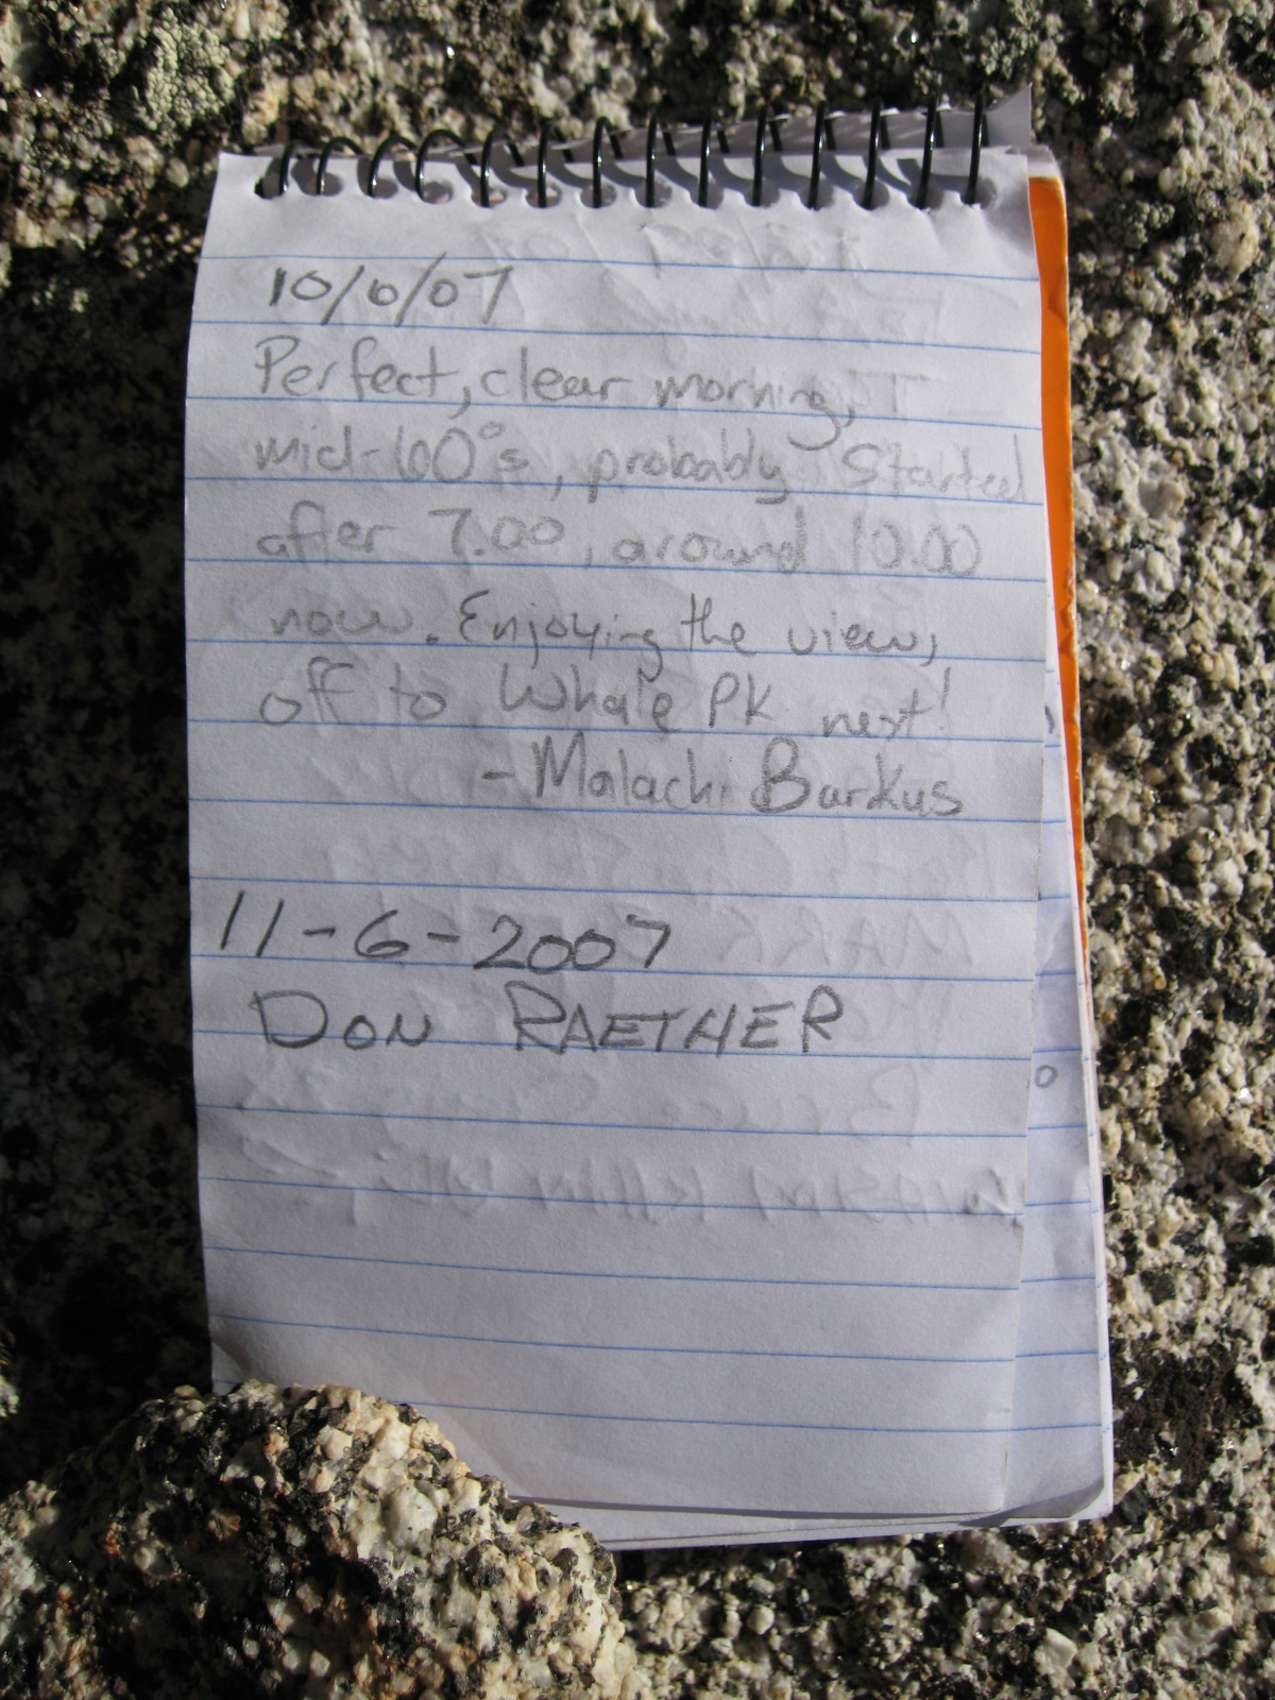 10/6/07
Perfect, clear morning,
mid-60°s, probably started
after 7.00, around 10.00
now. Enjoying the view,
off to Whale PK next!
- Malachi Barkus
11-6-2007
DON RAETHER